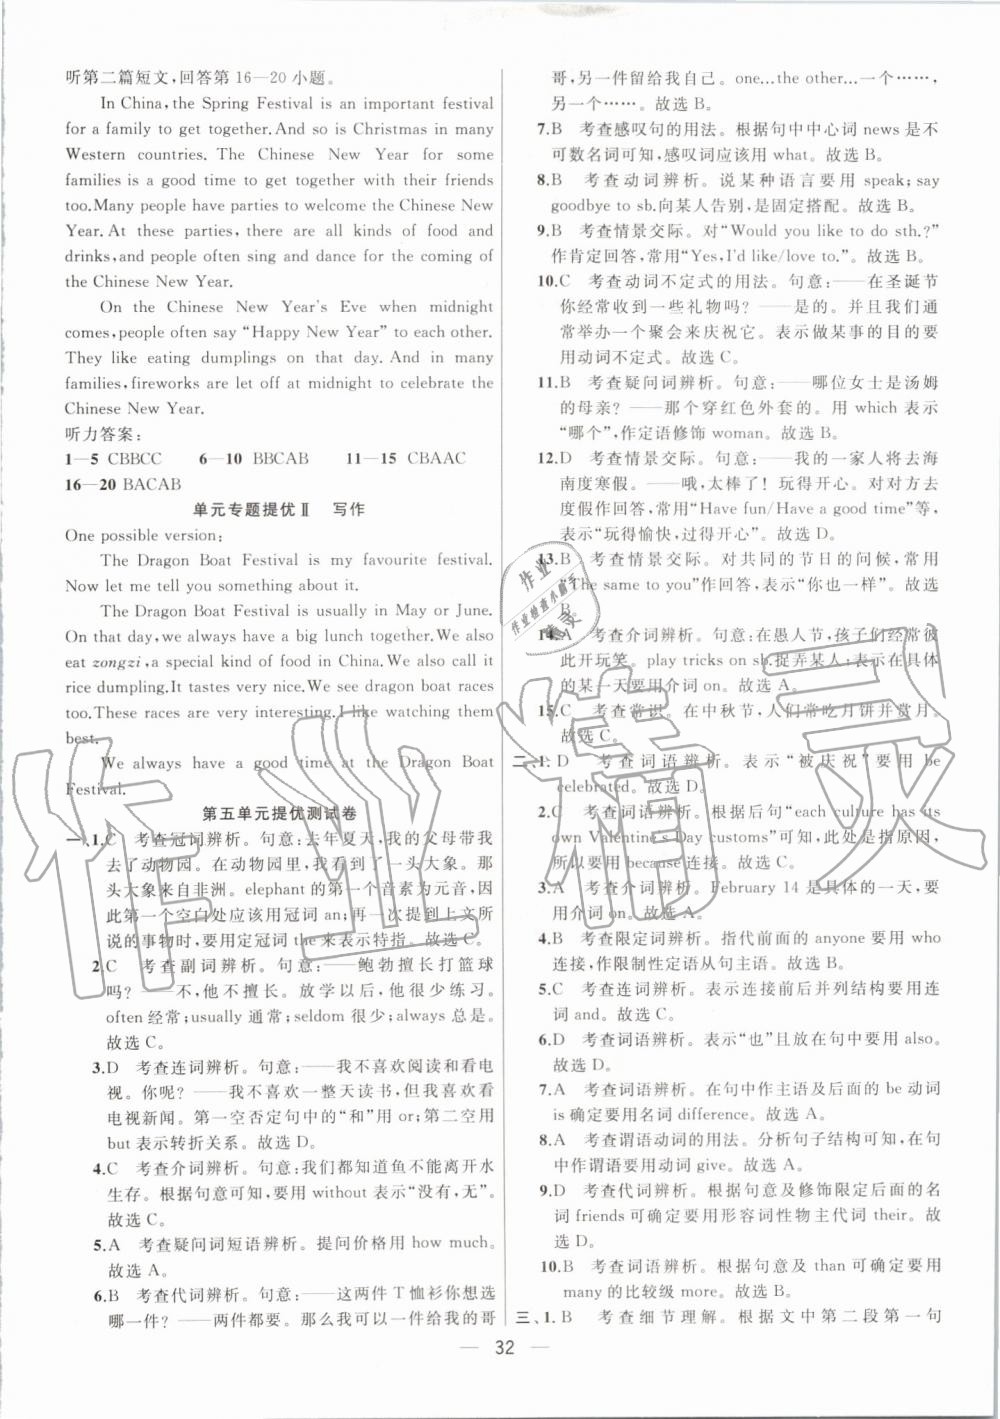 听第二篇短文,回答第 16—20 小题。
In China, the Spring Festival is an important festival
for a family to get together. And so is Christmas in many
Western countries. The Chinese New Year for some
families is a good time to get together with their friends
too. Many people have parties to welcome the Chinese New
Year. At these parties, there are all kinds of food and
drinks, and people often sing and dance for the coming of
the Chinese New Year.
On the Chinese New Year's Eve when midnight
comes, people often say "Happy New Year" to each other.
They like eating dumplings on that day. And in many
families, fireworks are let off at midnight to celebrate the
Chinese New Year.
听力答案:
1—5 CBBCC 6—10 BBCAB 11—15 CBAAC
16—20 BACAB
单元专题提优Ⅱ 写作
One possible version:
The Dragon Boat Festival is my favourite festival.
Now let me tell you something about it.
The Dragon Boat Festival is usually in May or June.
On that day, we always have a big lunch together. We also
eat zongzi, a special kind of food in China. We also call it
rice dumpling. It tastes very nice. We see dragon boat races
too. These races are very interesting. I like watching them
best.
We always have a good time at the Dragon Boat
Festival.
第五单元提优测试卷
一、1.C 考查冠词辨析。句意:去年夏天,我的父母带我
去了动物园。在动物园里,我看到了一头大象。那
头大象来自非洲。elephant 的第一个音素为元音,因
此第一个空白处应该用冠词 an;再一次提到上文所
说的事物时,要用定冠词 the 来表示特指。故选 C。
2.C 考查副词辨析。句意:——鲍勃擅长打篮球
吗? ——不,他不擅长。放学以后,他很少练习。
often 经常;usually 通常;seldom 很少;always 总是。
故选 C。
3.D 考查连词辨析。句意:——我不喜欢阅读和看电
视。你呢? ——我不喜欢一整天读书,但我喜欢看
电视新闻。第一空否定句中的“和”用 or;第二空用
but 表示转折关系。故选 D。
4.C 考查介词辨析。句意:我们都知道鱼不能离开水
生存。根据句意可知,要用 without 表示“没有,无”。
故选 C。
5.A 考查疑问词短语辨析。提问价格用 how much。
故选 A。
6.B 考查代词辨析。句意:——这两件 T 恤衫你想选
哪一件? ——两件都要。那么我可以一件给我的哥
哥,另一件留给我自己。one...the other...一个……,
另一个……。故选 B。
7.B 考查感叹句的用法。根据句中中心词 news 是不
可数名词可知,感叹词应该用 what。故选 B。
8.B 考查动词辨析。说某种语言要用 speak;say
goodbye to sb.向某人告别,是固定搭配。故选 B。
9.B 考查情景交际。对“Would you like to do sth.?”
作肯定回答,常用“Yes,I'd like/love to.”。故选 B。
10.C 考查动词不定式的用法。句意:——在圣诞节
你经常收到一些礼物吗? ——是的。并且我们通
常举办一个聚会来庆祝它。表示做某事的目的要
用动词不定式。故选 C。
11.B 考查疑问词辨析。句意:——哪位女士是汤姆
的母亲? ——那个穿红色外套的。用 which 表示
“哪个”,作定语修饰 woman。故选 B。
12.D 考查情景交际。句意:——我的一家人将去海
南度寒假。——哦,太棒了! 玩得开心。对对方去
度假作回答,常用“Have fun/Have a good time”等,
表示“玩得愉快,过得开心”。故选 D。
13.B 考查情景交际。对共同的节日的问候,常用
“The same to you”作回答,表示“你也一样”。故选
B。
14.A 考查介词辨析。句意:在愚人节,孩子们经常彼
此开玩笑。play tricks on sb.捉弄某人;表示在具体
的某一天要用介词 on。故选 A。
15.C 考查常识。在中秋节,人们常吃月饼并赏月。
故选 C。
二、1.D 考查词语辨析。表示“被庆祝”要用 be
celebrated。故选 D。
2.C 考查词语辨析。根据后句“each culture has its
own Valentine's Day customs”可知,此处是指原因,
所以要用 because 连接。故选 C。
3.A 考查介词辨析。February 14 是具体的一天,要
用介词 on。故选 A。
4.B 考查限定词辨析。指代前面的 anyone 要用 who
连接,作限制性定语从句主语。故选 B。
5.C 考查连词辨析。表示连接前后并列结构要用连
词 and。故选 C。
6.D 考查词语辨析。表示“也”且放在句中要用 also。
故选 D。
7.A 考查词语辨析。在句中作主语及后面的 be 动词
is 确定要用名词 difference。故选 A。
8.A 考查谓语动词的用法。分析句子结构可知,在句
中作谓语要用动词 give。故选 A。
9.D 考查代词辨析。根据句意及修饰限定后面的名
词 friends 可确定要用形容词性物主代词 their。故
选 D。
10.B 考查词语辨析。根据句意及 than 可确定要用
many 的比较级 more。故选 B。
三、1.B 考查细节理解。根据文中第二段第一句
— 32 —
作业精灵